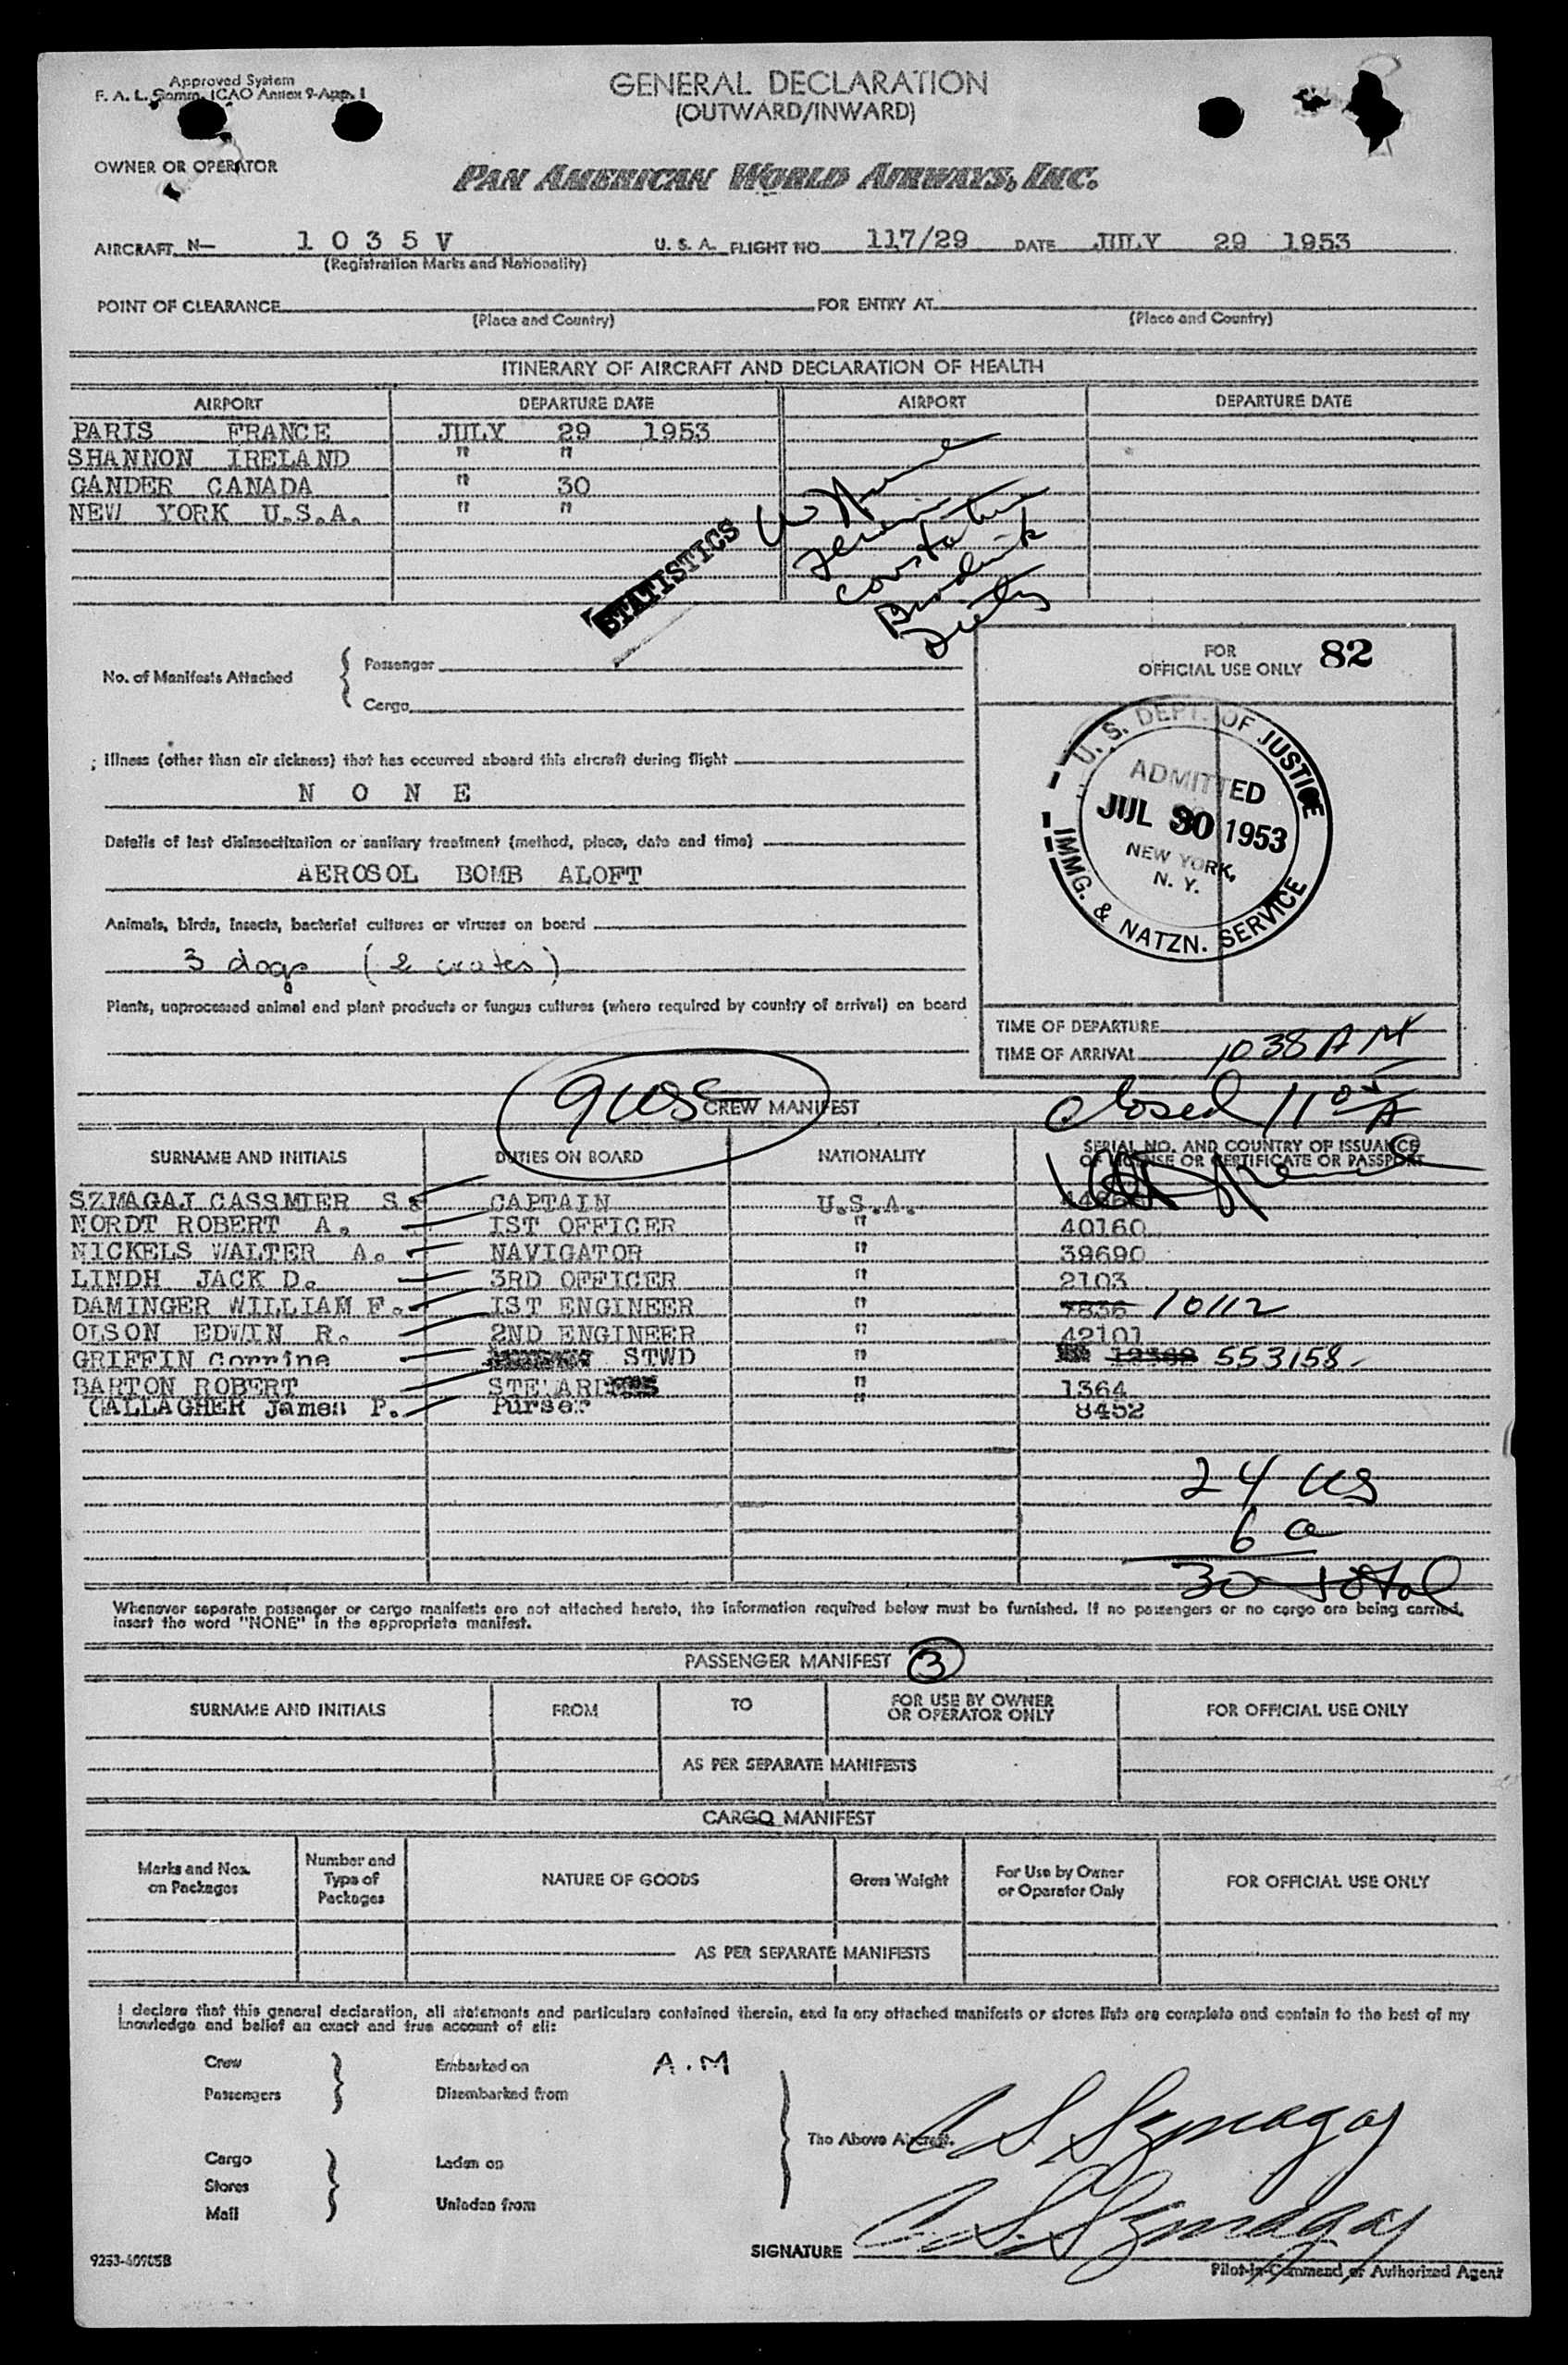 Approved System
F. A. L. Comm. ICAO Annex 9-App. 1
GENERAL DECLARATION
(OUTWARD/INWARD)
OWNER OR OPERATOR
PAN AMERICAN WORLD AIRWAYS, INC.
AIRCRAFT N— 1 0 3 5 V U. S. A. FLIGHT NO. 117/29 DATE JULY 29 1953
(Registration Marks and Nationality)
POINT OF CLEARANCE FOR ENTRY AT
(Place and Country) (Place and Country)
ITINERARY OF AIRCRAFT AND DECLARATION OF HEALTH
AIRPORT DEPARTURE DATE AIRPORT DEPARTURE DATE
PARIS FRANCE JULY 29 1953
SHANNON IRELAND " "
GANDER CANADA " 30
NEW YORK U.S.A. " "
STATISTICS
No. of Manifests Attached
Passenger
Cargo
FOR
OFFICIAL USE ONLY 82
U. S. DEPT. OF JUSTICE
ADMITTED
JUL 30 1953
NEW YORK,
N. Y.
IMMG. & NATZN. SERVICE
Illness (other than air sickness) that has occurred aboard this aircraft during flight
N O N E
Details of last disinsectization or sanitary treatment (method, place, date and time)
AEROSOL BOMB ALOFT
Animals, birds, insects, bacterial cultures or viruses on board
3 dogs (2 crates)
Plants, unprocessed animal and plant products or fungus cultures (where required by country of arrival) on board
TIME OF DEPARTURE
TIME OF ARRIVAL 1038 AM
9 USC CREW MANIFEST
closed 11 05 A
SURNAME AND INITIALS DUTIES ON BOARD NATIONALITY SERIAL NO. AND COUNTRY OF ISSUANCE
OF LICENSE OR CERTIFICATE OR PASSPORT
SZMAGAJ CASSMIER S. CAPTAIN U.S.A.
NORDT ROBERT A. IST OFFICER " 40160
NICKELS WALTER A. NAVIGATOR " 39690
LINDH JACK D. 3RD OFFICER " 2103
DAMINGER WILLIAM F. IST ENGINEER " 7836 10112
OLSON EDWIN R. 2ND ENGINEER " 42101
GRIFFIN Corrine STWD " 553158
BARTON ROBERT STEWARD " 1364
GALLAGHER James P. Purser " 8452
24 US
6 a
30 Total
Whenever separate passenger or cargo manifests are not attached hereto, the information required below must be furnished. If no passengers or no cargo are being carried,
insert the word "NONE" in the appropriate manifest.
PASSENGER MANIFEST 3
SURNAME AND INITIALS FROM TO FOR USE BY OWNER
OR OPERATOR ONLY FOR OFFICIAL USE ONLY
AS PER SEPARATE MANIFESTS
CARGO MANIFEST
Marks and Nos.
on Packages Number and
Type of
Packages NATURE OF GOODS Gross Weight For Use by Owner
or Operator Only FOR OFFICIAL USE ONLY
AS PER SEPARATE MANIFESTS
I declare that this general declaration, all statements and particulars contained therein, and in any attached manifests or stores lists are complete and contain to the best of my
knowledge and belief an exact and true account of all:
Crew Embarked on A.M
Passengers Disembarked from
The Above Aircraft.
C S Szmagaj
Cargo Laden on
Stores
Mail Unladen from
SIGNATURE C. S. Szmagaj
Pilot-in-Command or Authorized Agent